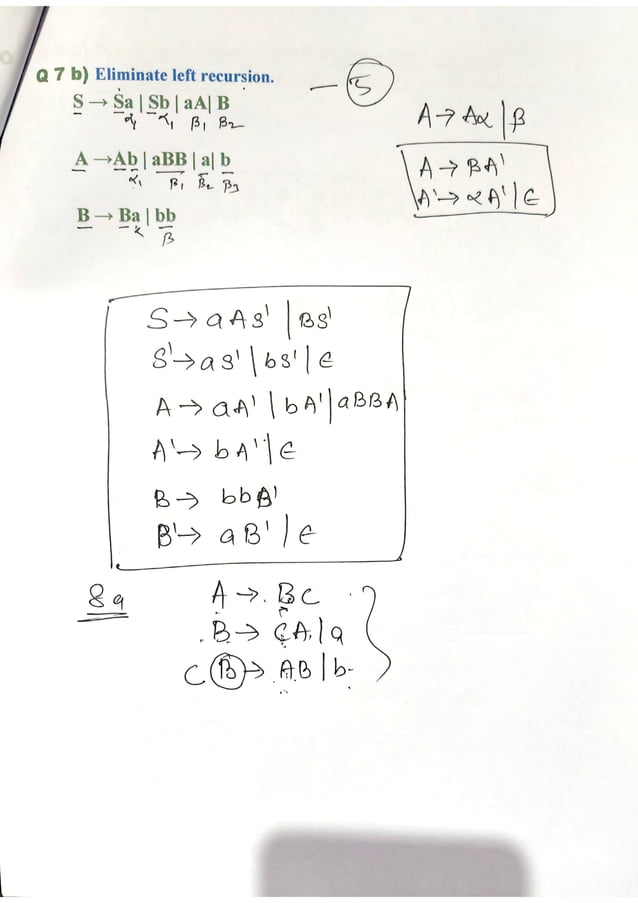 Q 7 b) Eliminate left recursion.
— 5
S → Sa | Sb | aA| B
α1 α1 β1 β2
A →Ab | aBB | a| b
α1 β1 β2 β3
B → Ba | bb
α β
A → Aα | β
A → BA'
A' → αA' | ∈
S → aAS' | BS'
S' → aS' | bS' | ∈
A → aA' | bA' | aBBA
A' → bA' | ∈
B → bbB'
B' → aB' | ∈
8a
A → BC
B → CA | a
C B → AB | b